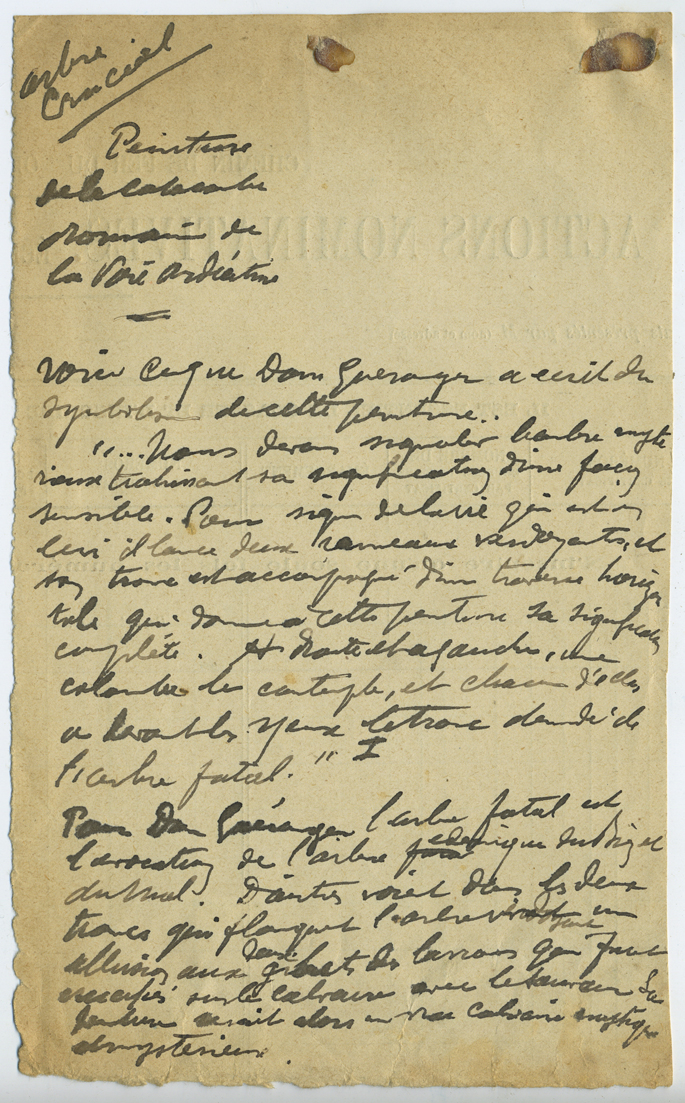 arbre
crucial
Peinture
de la catacombe
romaine de
la Voie ardéatine
Voici ce que Dom Guéranger a écrit du
symbolisme de cette peinture..
"... Nous devons signaler l'arbre mysté
rieux trahissant sa signification d'une façon
sensible. Pour signe de la vie qui est en
lui il lance deux rameaux verdoyants, et
son tronc est accompagné d'une traverse horizon
tale qui donne a cette peinture sa signification
complète. A droite et a gauche, une
colombe le contemple, et chacune d'elles
a devant les yeux le tronc dénudé de
l'arbre fatal." I
Pour Dom Guéranger l'arbre fatal est
l'évocation de l'arbre édénique du Bien et
du Mal. D'autres voient dans les deux
troncs qui flanquent l'arbre une
allusion aux gibets des larrons qui furent
crucifiés sur le calvaire avec le Sauveur. La
peinture serait alors un vrai calvaire mystique
et mystérieux.
ACTIONS NOMINATIVES